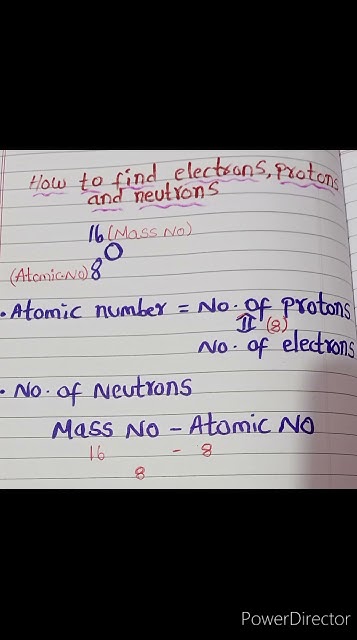 How to find electrons, protons
and neutrons
16 (Mass No)
O
(Atomic.No) 8
• Atomic number = No. of protons
II (8)
No. of electrons
• No. of Neutrons
Mass No - Atomic NO
16 - 8
8
PowerDirector